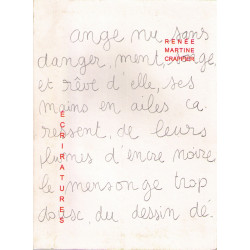 ange nu sans
danger, ment, songe,
et rêve d'elle, ses
mains en ailes ca
ressent, de leurs
plumes d'encre noire
le mensonge trop
doux, du dessin dé
RENÉE
MARTINE
CRAPPIER
ÉCRIRATURES